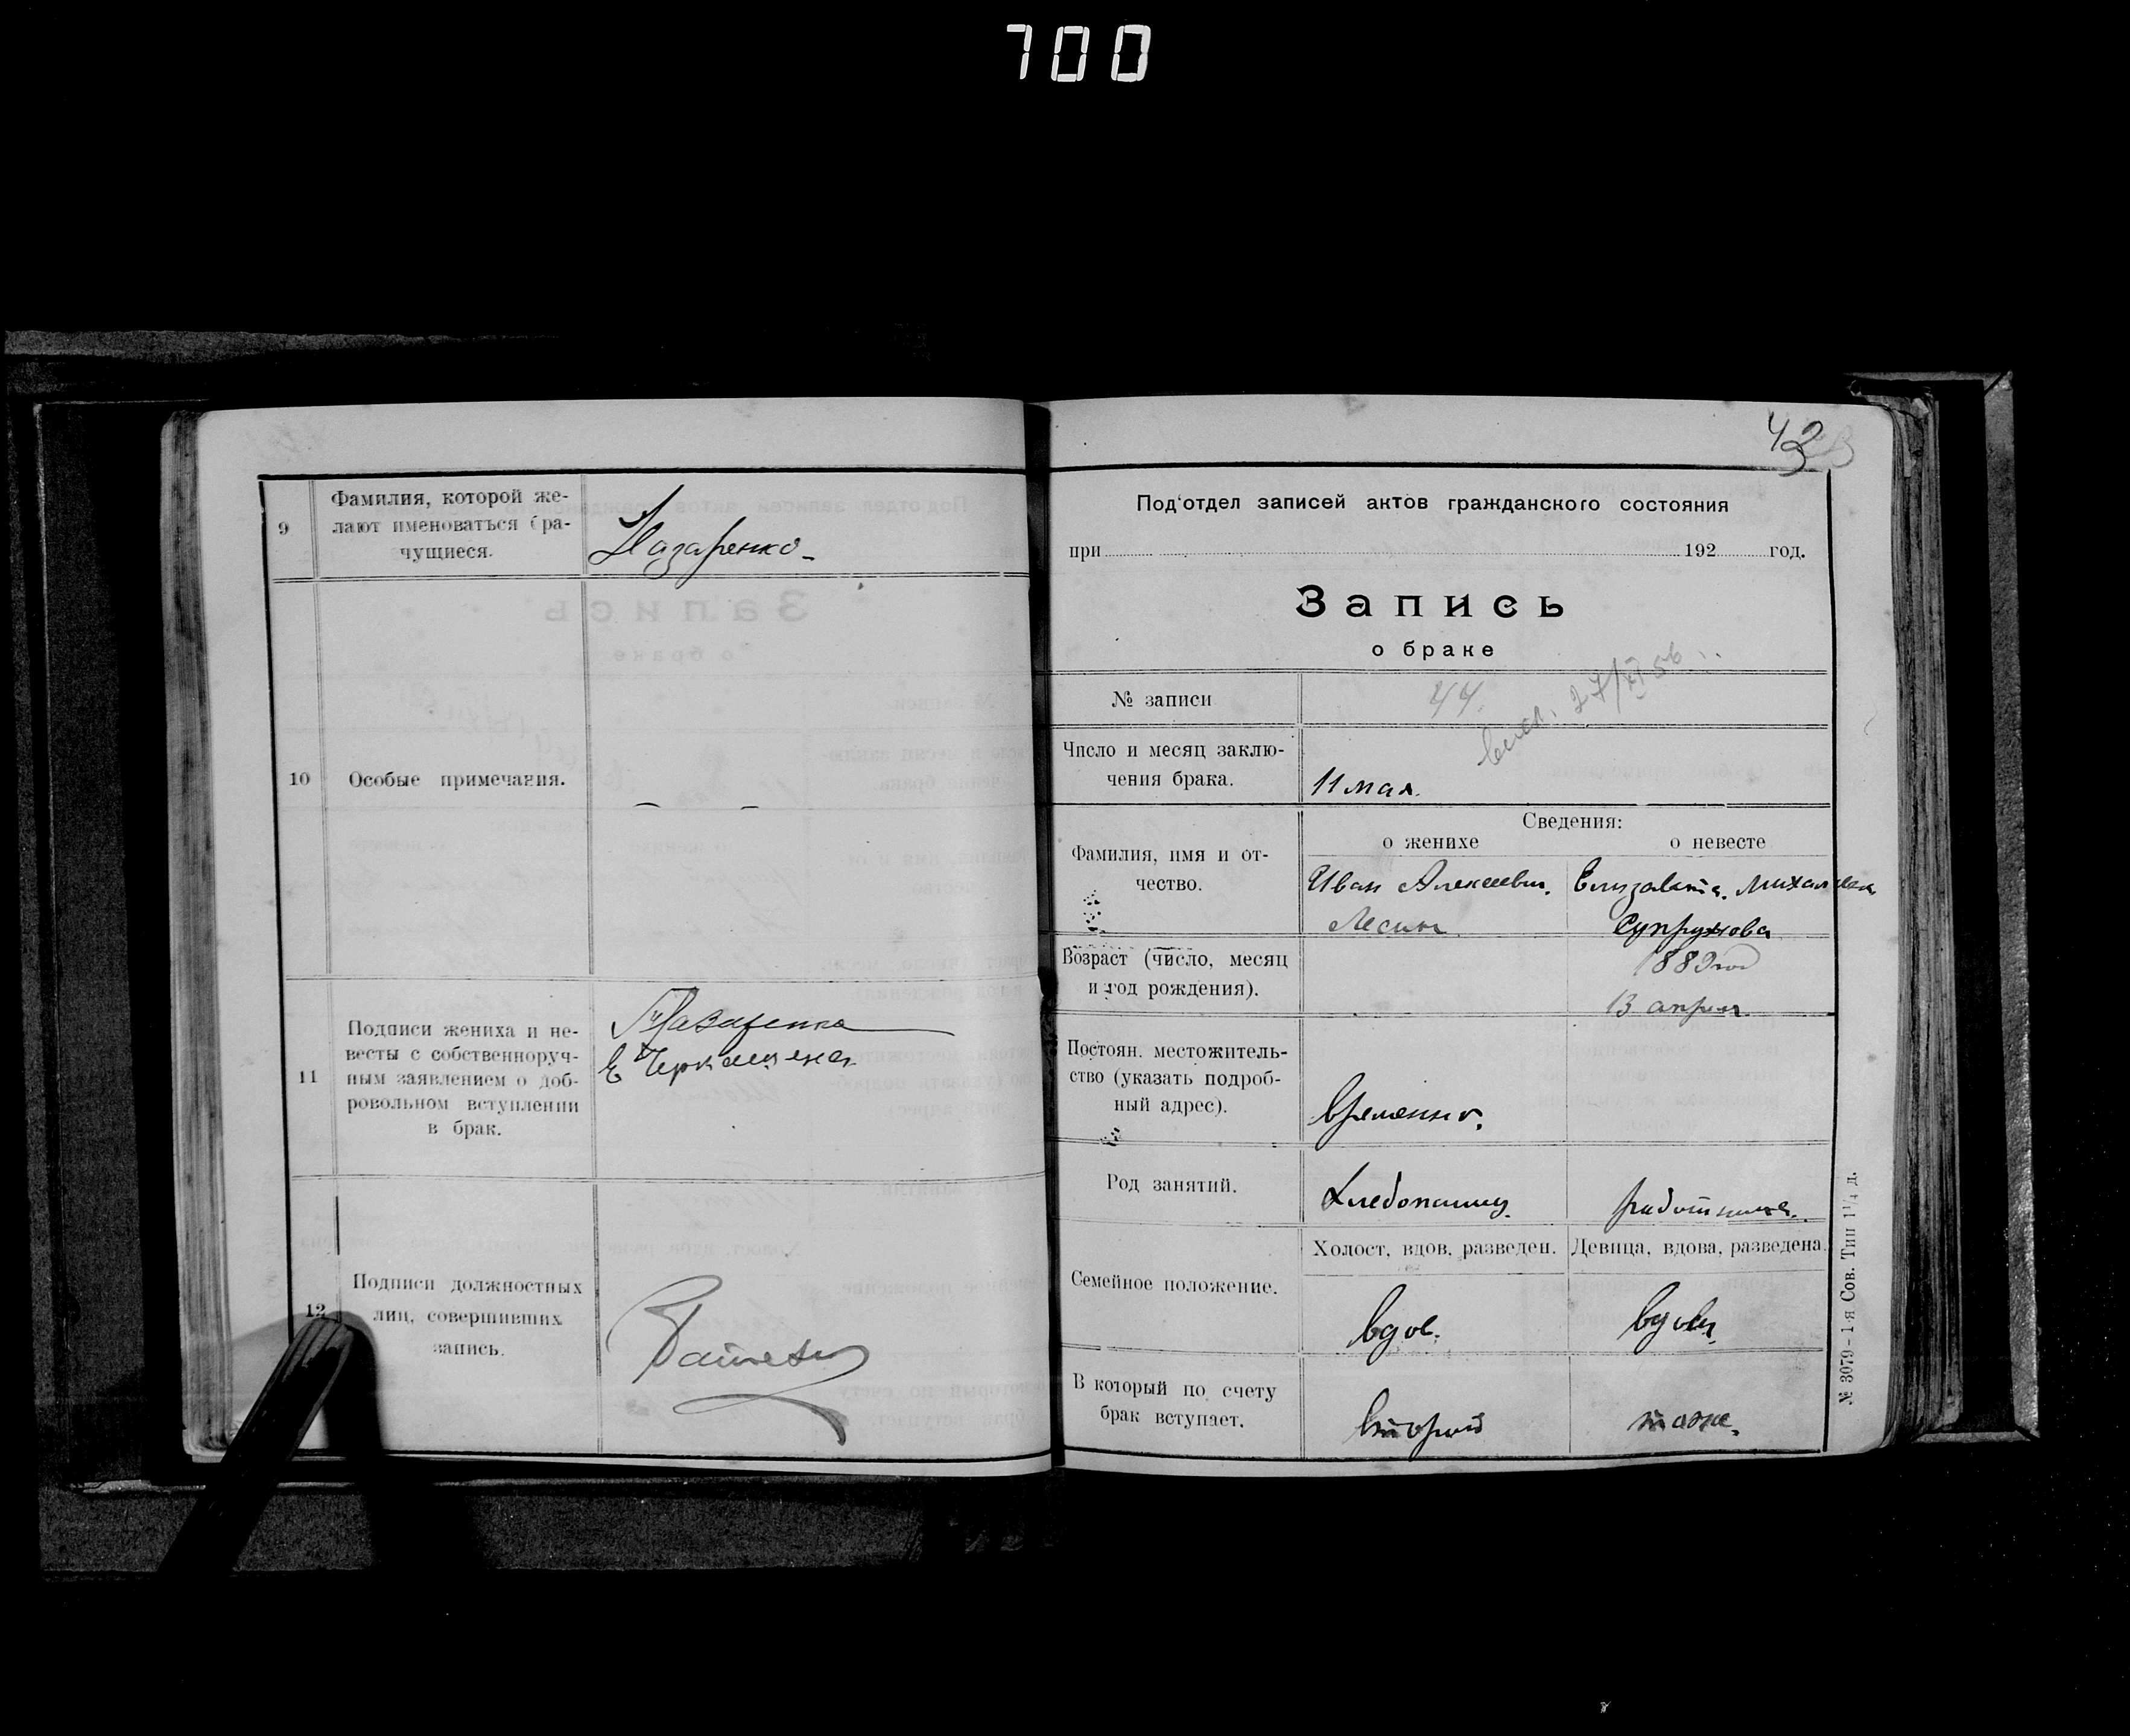 700
9
Фамилия, которой же-
лают именоваться бра-
чущиеся.
Назаренко
10
Особые примечания.
— —
11
Подписи жениха и не-
весты с собственноруч-
ным заявлением о доб-
ровольном вступлении
в брак.
Назаренко
Е Черкашена
12
Подписи должностных
лиц, совершивших
запись.
43
Под'отдел записей актов гражданского состояния
при 192 год.
Запись
о браке
№ записи
44.
27/XI 56
Число и месяц заклю-
чения брака.
11 мая.
Сведения:
о женихе
о невесте
Фамилия, имя и от-
чество.
Иван Алексеевич.
Лесин
Елизавета. Михайловна
Супрунова
Возраст (число, месяц
и год рождения).
1889 год
13 апреля.
Постоян. местожитель-
ство (указать подроб-
ный адрес).
временно.
Род занятий.
Хлебопашец.
работница.
Семейное положение.
Холост, вдов, разведен.
Девица, вдова, разведена.
вдов.
вдова.
В который по счету
брак вступает.
второй
тоже.
№ 3079-1-я Сов. Тип 1¹/₄ д.